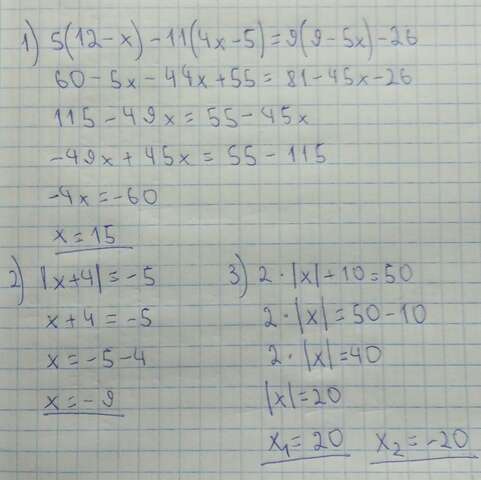 1) 5(12-x)-11(4x-5)=9(9-5x)-26
60-5x-44x+55=81-45x-26
115-49x=55-45x
-49x+45x=55-115
-4x=-60
x=15
2) |x+4|=-5
x+4=-5
x=-5-4
x=-9
3) 2·|x|+10=50
2·|x|=50-10
2·|x|=40
|x|=20
x₁=20 x₂=-20